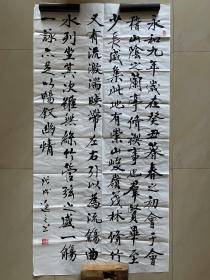 永和九年歲在癸丑暮春之初會于會
稽山陰蘭亭脩稧事也羣賢畢至
少長咸集此地有崇山峻嶺茂林脩竹
又有流激湍暎帶左右引以為流觴曲
水列坐其次雖無絲竹管弦之盛一觴
一詠亦足以暢敘幽情